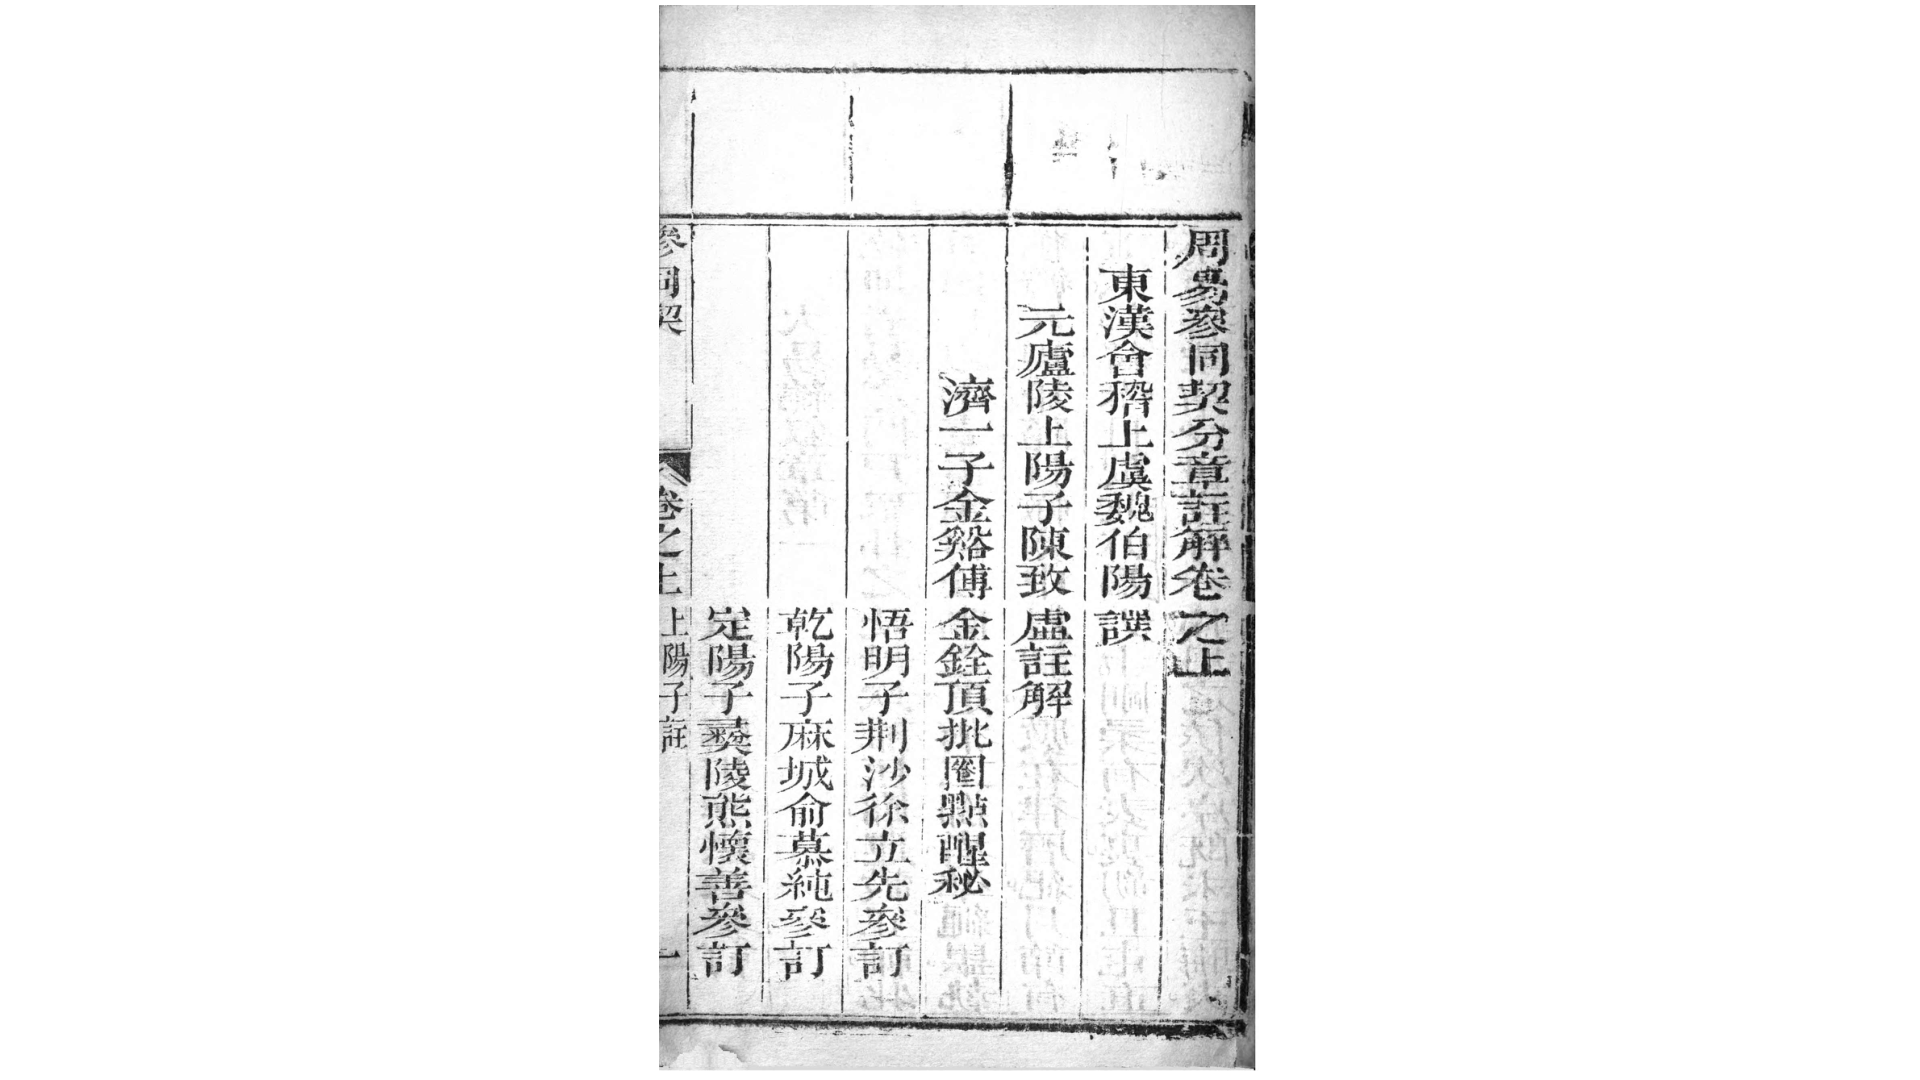 周易參同契分章註解卷之上
東漢會稽上虞魏伯陽譔
元廬陵上陽子陳致虛註解
濟一子金谿傅金銓頂批圈點醒秘
悟明子荆沙徐立先參訂
乾陽子麻城俞慕純參訂
定陽子彝陵熊懷善參訂
參同契 卷之上 上陽子註 一